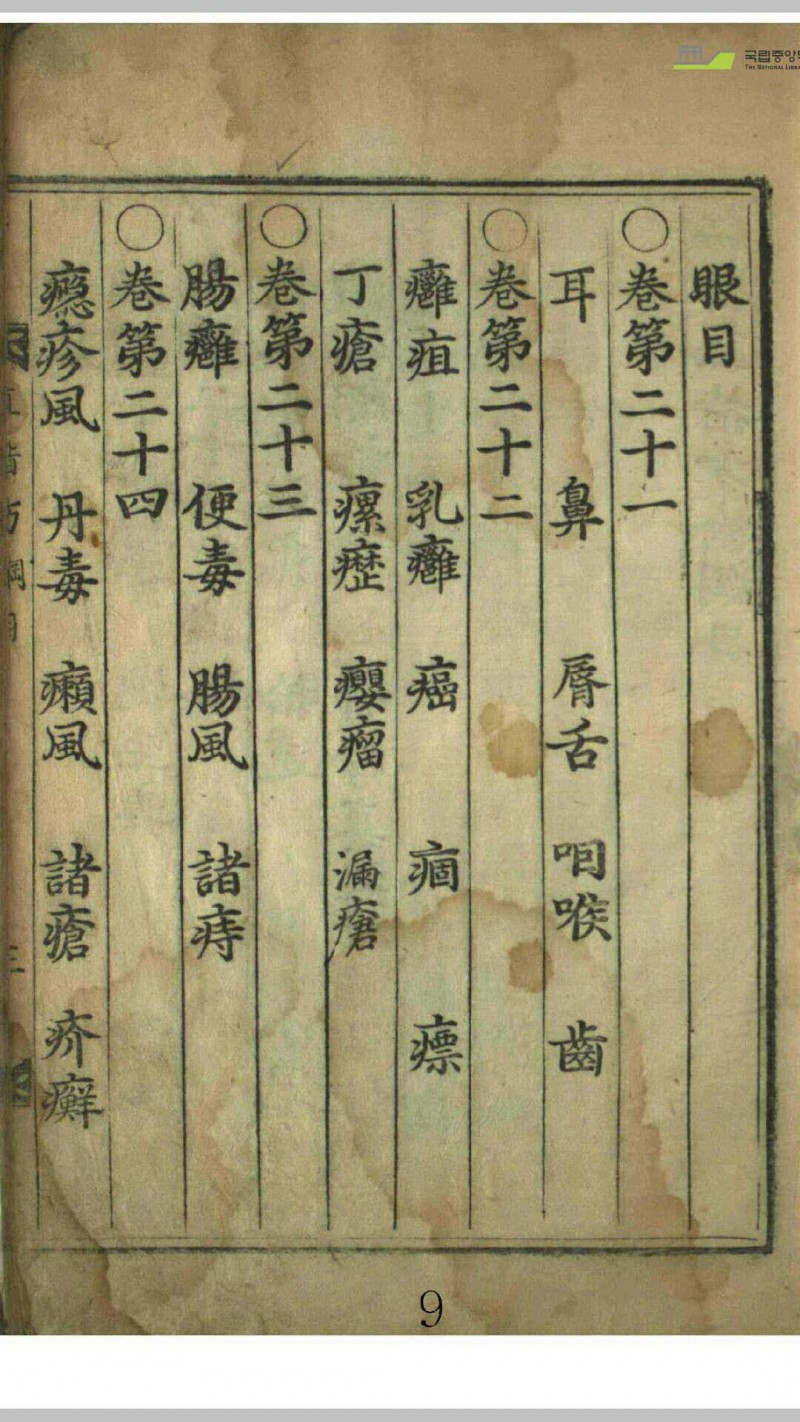 眼目
○卷第二十一
耳 鼻 脣舌 咽喉 齒
○卷第二十二
癰疽 乳癰 癌 痼 瘭
丁瘡 瘰癧 癭瘤 漏瘡
○卷第二十三
腸癰 便毒 腸風 諸痔
○卷第二十四
癮疹風 丹毒 癩風 諸瘡 疥癬
9